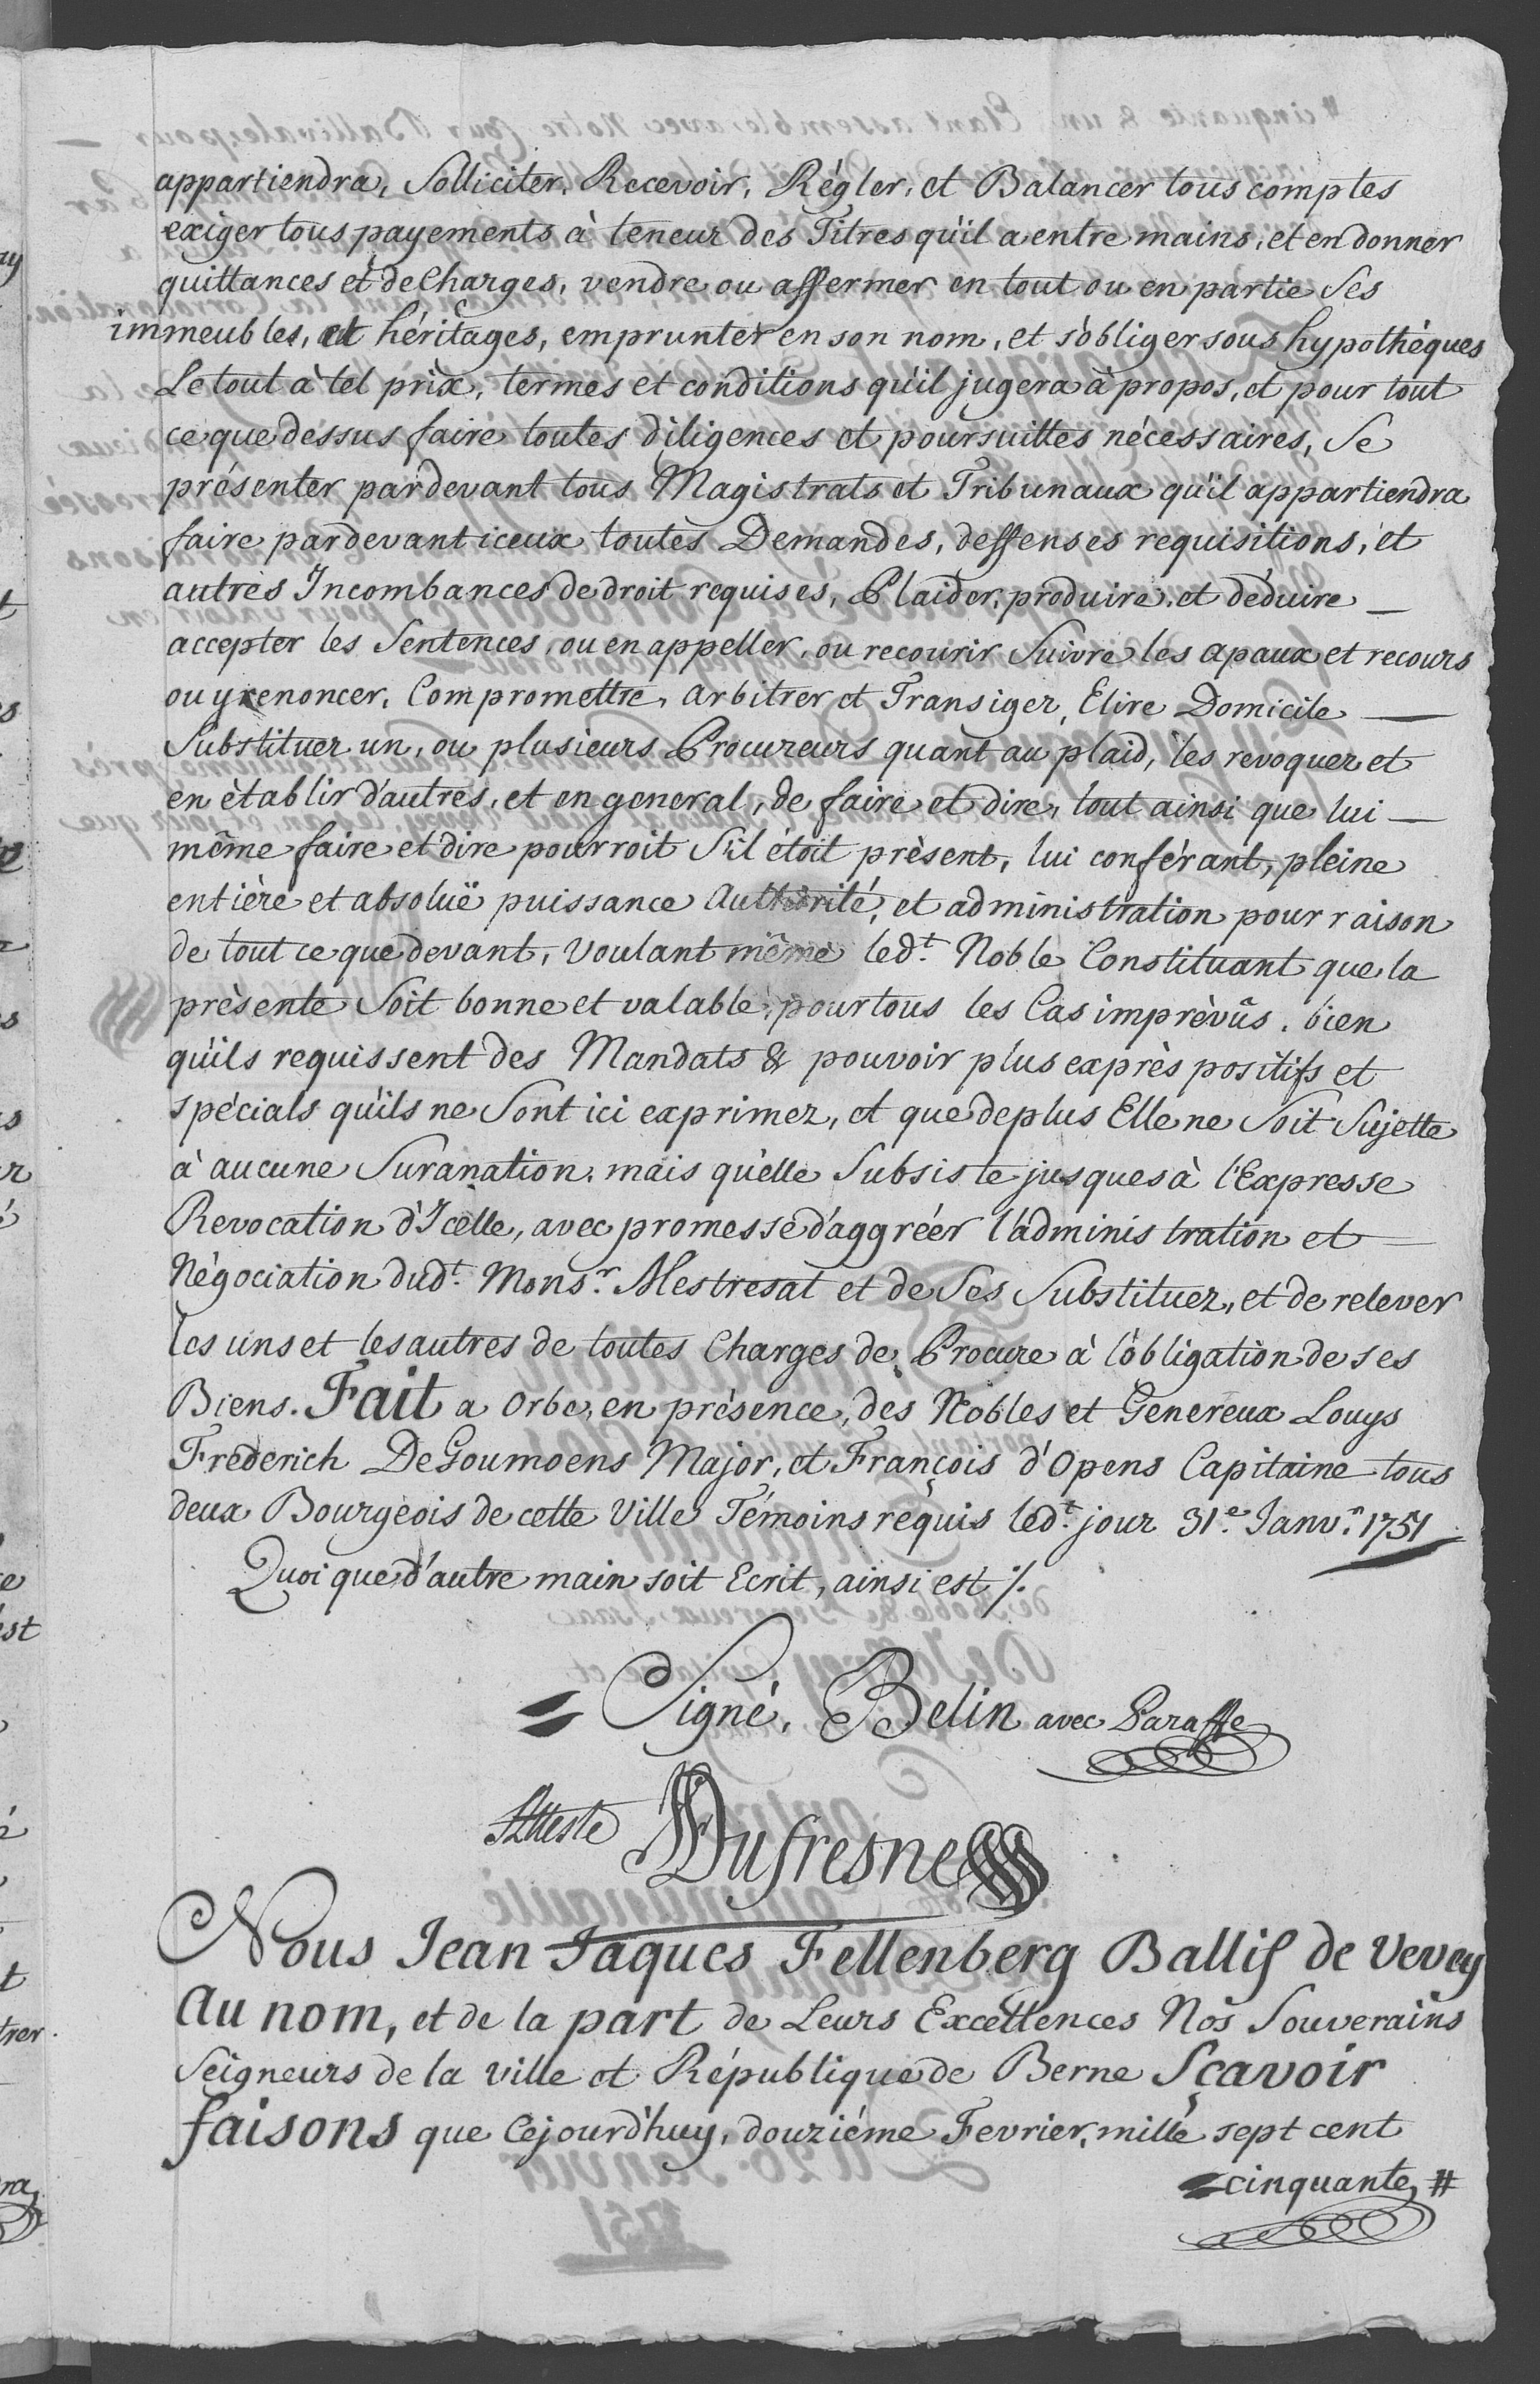 appartiendra, Solliciter, Recevoir, Régler, et Balancer tous comptes
exiger tous payements à teneur des Titres qu'il a entre mains, et en donner
quittances et deCharges, vendre ou affermer en tout ou en partie Ses
immeubles, et héritages, emprunter en son nom, et s'obliger sous hypothèques
Le tout à tel prix, termes et conditions qu'il jugera à propos, et pour tout
ce que dessus faire toutes diligences et poursuittes nécessaires, Se
présenter pardevant tous Magistrats et Tribunaux qu'il appartiendra
faire pardevant iceux toutes Demandes, deffenses requisitions, et
autres Incombances de droit requises, Plaider, produire, et déduire —
accepter les Sentences, ou en appeller, ou recourir Suivre les apaux et recours
ou y renoncer, Compromettre, arbitrer et Transiger, Elire Domicile —
Substituer un, ou plusieurs Procureurs quant au plaid, les revoquer et
en établir d'autres, et en general, de faire et dire, tout ainsi que lui —
même faire et dire pourroit S'il étoit présent, lui conférant, pleine
entière et absoluë puissance Authorité, et administration pour raison
de tout ce que devant, Voulant même led.t Noble Constituant que la
présente Soit bonne et valable, pour tous les Cas imprèvûs, bien
qu'ils requissent des Mandats & pouvoir plus exprès positifs et
spécials qu'ils ne Sont ici exprimez, et que deplus Elle ne Soit Sujette
à aucune Suranation, mais qu'elle Subsiste jusques à l'Expresse
Revocation d'Icelle, avec promesse d'aggréer l'administration et —
Négociation dud.t Mons.r Mestresat et de Ses Substituez, et de relever
les uns et les autres de toutes Charges de Procure à l'obligation de ses
Biens. Fait a Orbe, en présence, des Nobles et Genereux Louys
Frederich DeGoumoens Major, et François d'Opens Capitaine tous
deux Bourgeois de cette Ville Témoins requis led.t jour 31.e Janv.r 1751
Quoi que d'autre main soit Ecrit, ainsi est /.
= Signé, Belin avec Paraffe
Atteste Dufresne
Nous Jean Jaques Fellenberg Ballif de Vevey
Au nom, et de la part de Leurs Excellences Nos Souverains
Seigneurs de la Ville et République de Berne Sçavoir
faisons que Cejourd'huy, douziéme Fevrier, mille sept cent
= cinquante, #